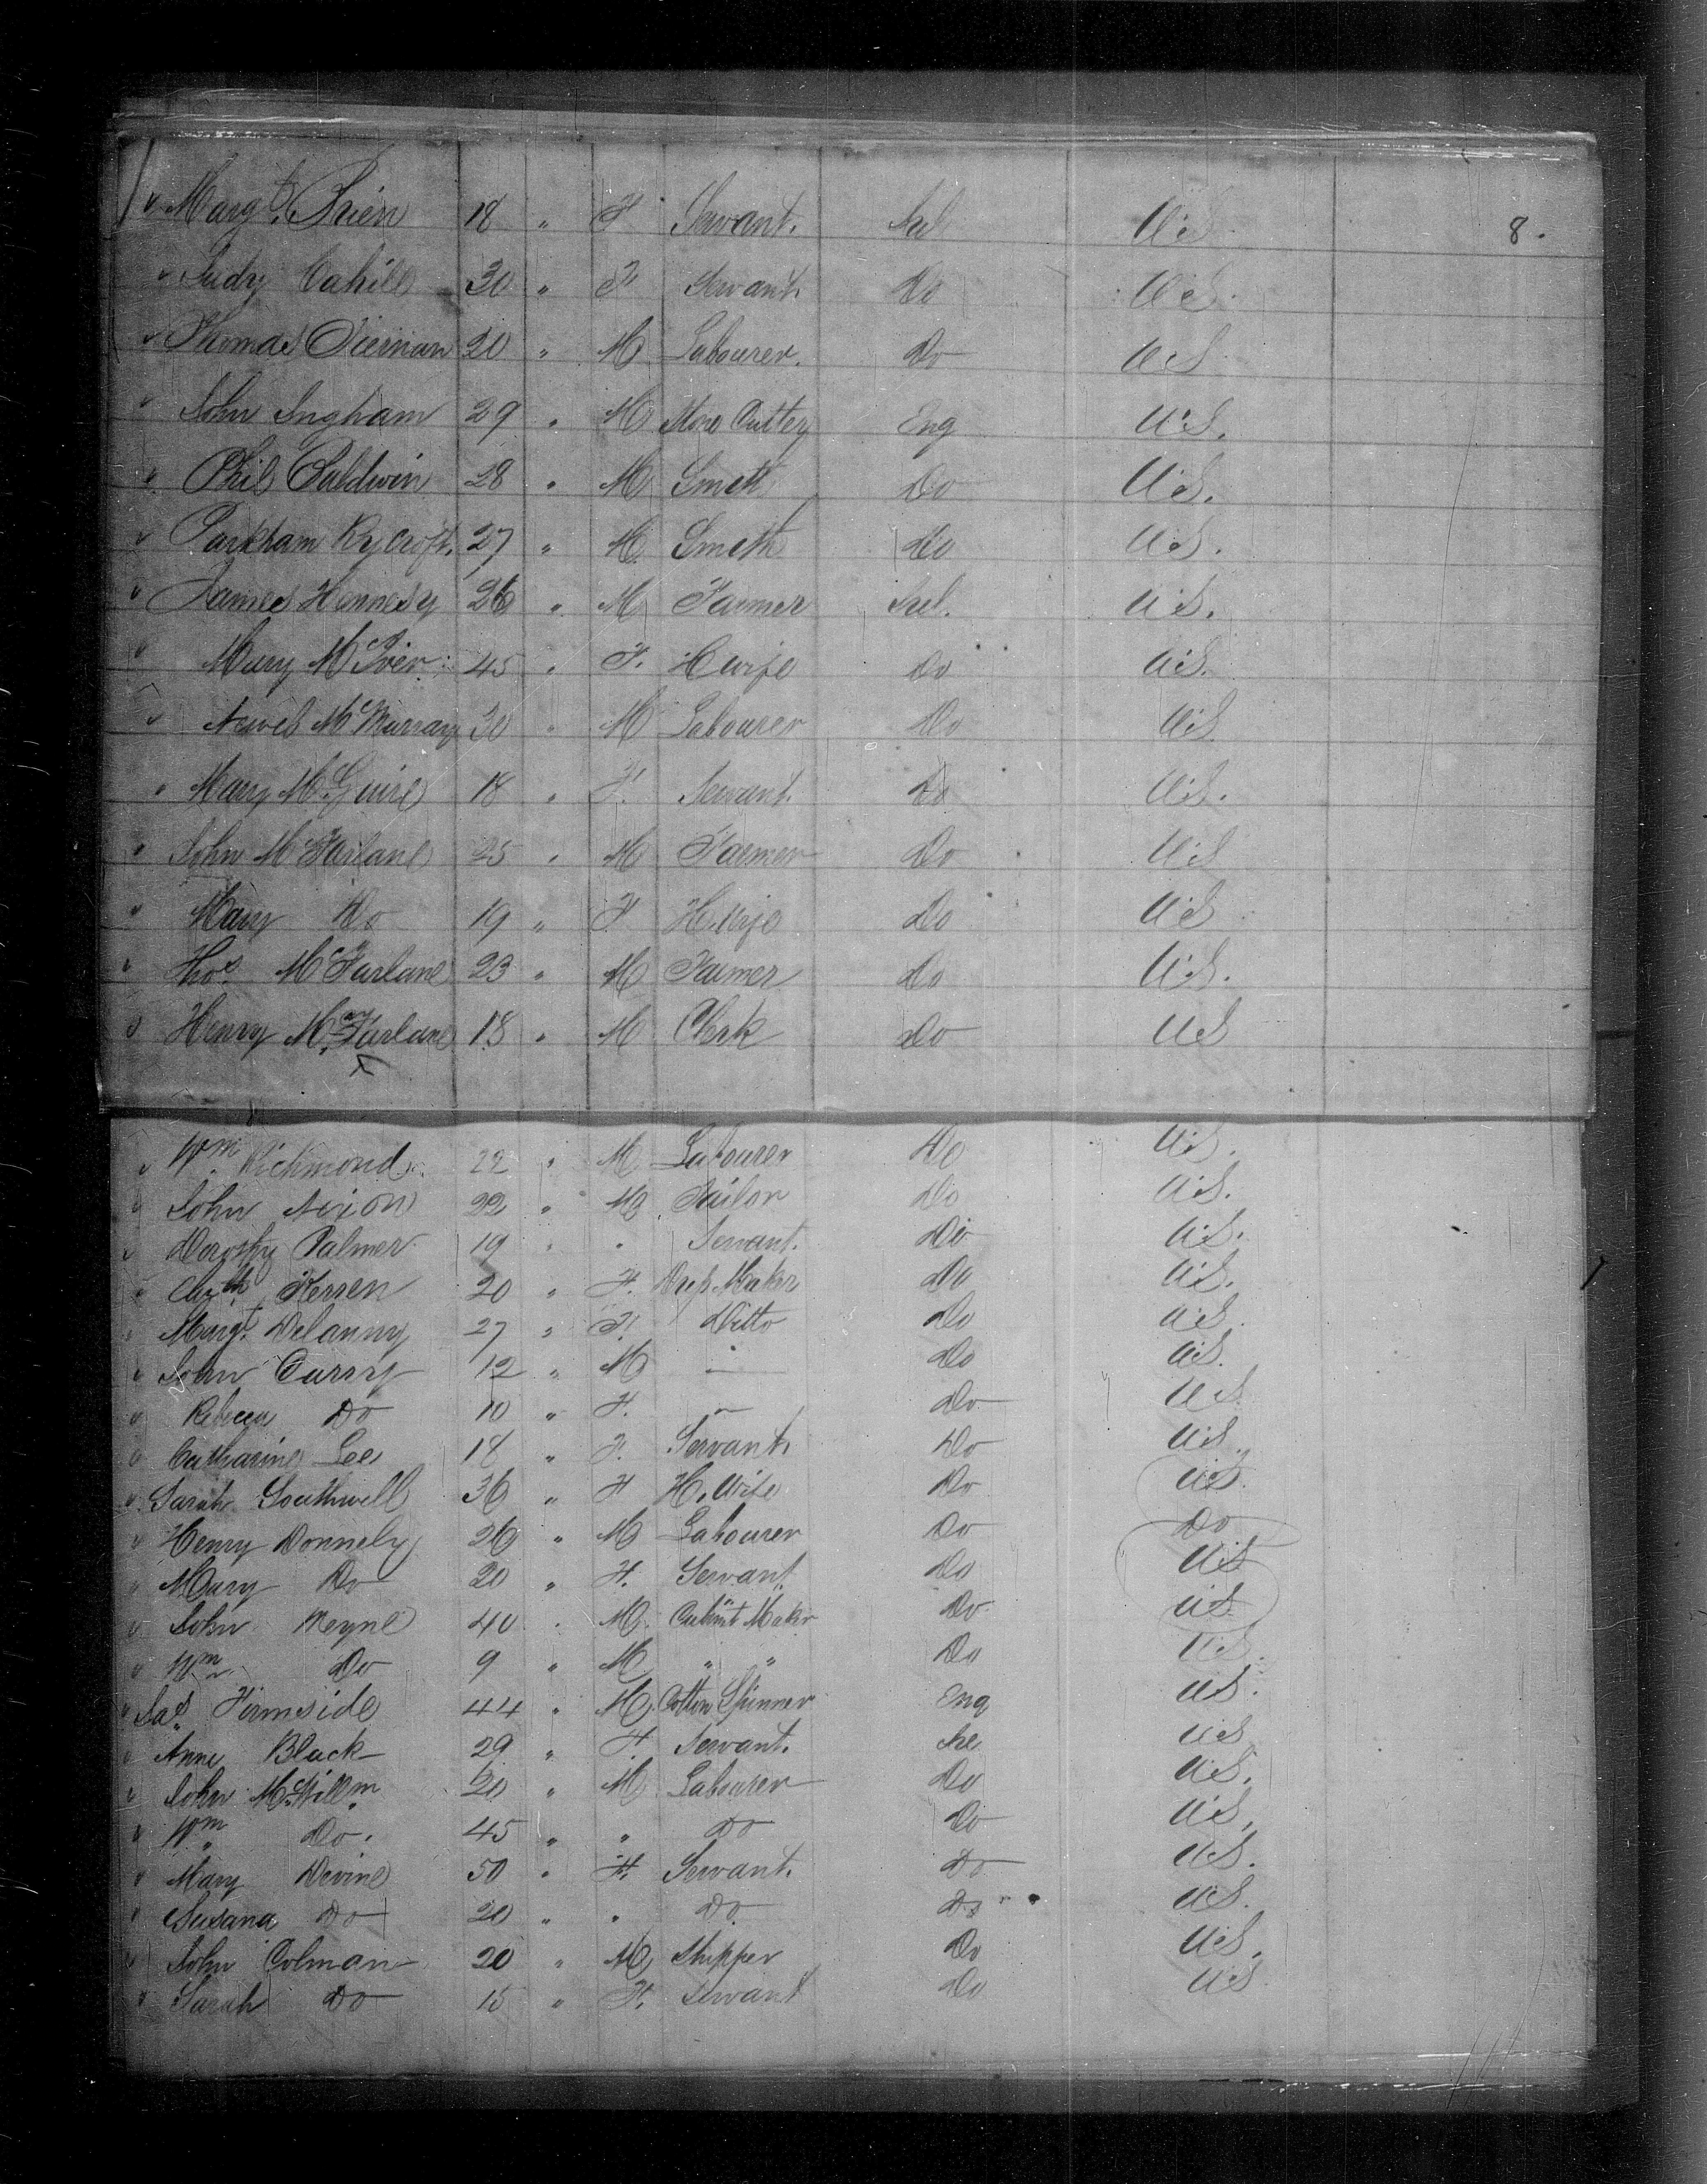 " Margt. Brien 18 " F Servant. Irel U.S. 8.
" Judy Cahill 30 " F Servant. Do U.S.
" Thomas Tiernan 20 " M Labourer. Do U.S.
" John Ingham 29 " M Cutter Eng U.S.
" Phil Baldwin 28 " M Smith Do U.S.
" Rycroft. 27 " M Smith Do U.S.
" James Hennesy 26 " M Farmer Irel. U.S.
" Mary McIver 45 " F. H wife Do U.S.
" McMurray 30 " M Labourer Do U.S.
" Mary McGuire 18 " F. Servant. Do U.S.
" John McFarlane 25 " M Farmer Do U.S.
" Mary Do 19 " F H. Wife Do U.S.
" Thos. McFarlane 23 " M Farmer Do U.S.
" Henry McFarlane 18 " M Clerk Do U.S.
" Wm. Richmond 22 " M Labourer Do U.S.
" John Nixon 22 " M Tailor Do U.S.
" Dorothy Palmer 19 " " Servant. Do U.S.
" 20 " F. Dress Maker Do U.S.
" Margt. Delanny 27 " F. Ditto Do U.S.
" John Curry 12 " M — Do U.S.
" Rebecca Do 10 " F. — Do U.S.
" Catharine Lee 18 " F. Servant. Do U.S.
" Sarah Southwell 36 " F H. Wife Do U.S.
" Henry Donnely 26 " M Labourer Do Do
" Mary Do 20 " F. Servant. Do U.S.
" John 40 " M. Cabinet Maker Do U.S.
" Wm. Do 9 " M " " Do U.S.
" Jas. Firmside 44 " M. Cotton Spinner Eng U.S.
" Anne Black 29 " F. Servant. Ire U.S.
" John McWillm 20 " M Labourer Do U.S.
" Wm. Do. 45 " " Do Do U.S.
" Mary Devine 50 " F. Servant. Do U.S.
" Susana Do 20 " " Do Do U.S.
" John Colman 20 " M Do U.S.
" Sarah Do 15 " F. Servant Do U.S.